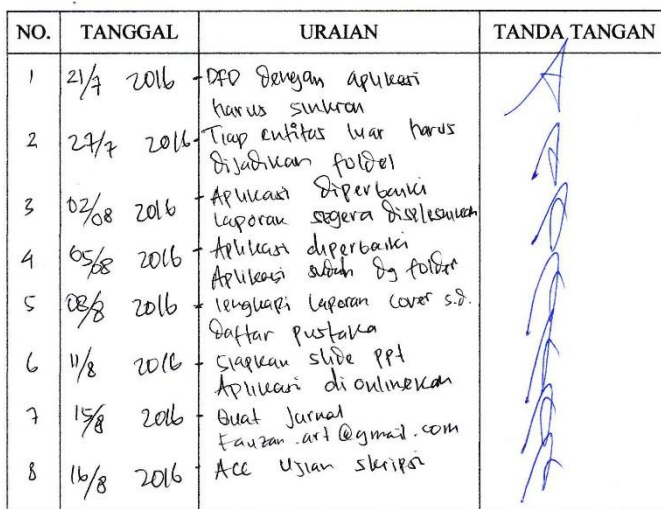 NO. TANGGAL URAIAN TANDA TANGAN
1 21/7 2016 - DFD dengan aplikasi
harus sinkron
2 27/7 2016 - Tiap entitas luar harus
dijadikan folder
3 02/08 2016 - Aplikasi diperbaiki
Laporan segera diselesaikan
4 05/08 2016 - Aplikasi diperbaiki
Aplikasi sudah dg folder
5 08/8 2016 - lengkapi laporan cover s.d.
daftar pustaka
6 11/8 2016 - Siapkan slide ppt
Aplikasi dionlinekan
7 15/8 2016 - Buat Jurnal
Fauzan.art@gmail.com
8 16/8 2016 - Acc Ujian skripsi